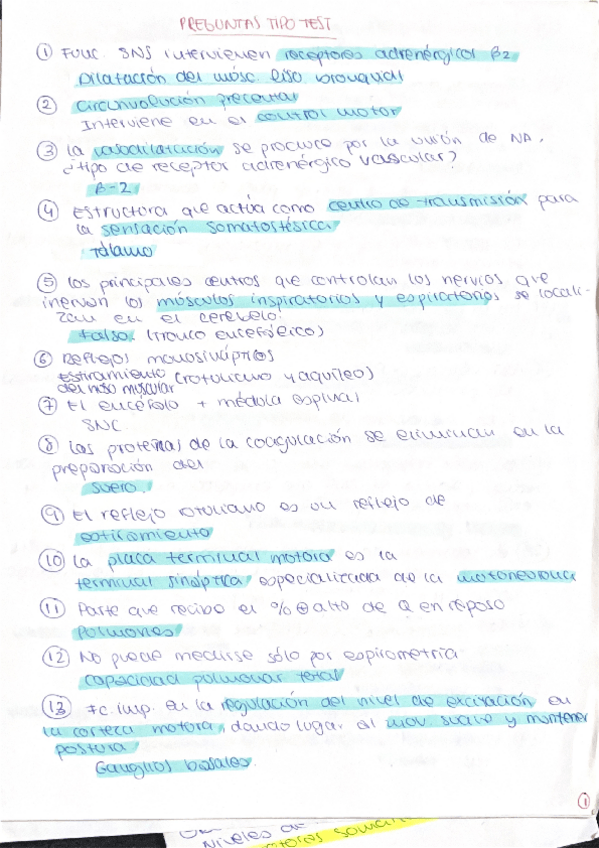 PREGUNTAS TIPO TEST
① Func. SNS intervienen receptores adrenérgicos β2
Dilatación del músc. liso bronquial
② Circunvolución precentral
Interviene en el control motor
③ La vasodilatación se produce por la unión de NA.
¿tipo de receptor adrenérgico vascular?
β-2
④ Estructura que actúa como centro de transmisión para
la sensación somatostésica
Tálamo
⑤ Los principales centros que controlan los nervios que
inervan los músculos inspiratorios y espiratorios se locali-
zan en el cerebelo.
Falso. (tronco encefálico)
⑥ Reflejos monosinápticos
estiramiento (rotuliano y aquíleo)
del huso muscular
⑦ El encéfalo + médula espinal
SNC
⑧ Las proteínas de la coagulación se eliminan en la
preparación del
suero.
⑨ El reflejo rotuliano es un reflejo de
estiramiento
⑩ La placa terminal motora es la
terminal sináptica especializada de la motoneurona
⑪ Parte que recibe el % ⊕ alto de Q en reposo
Pulmones
⑫ No puede medirse sólo por espirometría
capacidad pulmonar total
⑬ Fc. imp. en la regulación del nivel de excitación en
la corteza motora, dando lugar al mov. suave y mantener
postura
Ganglios basales.
①
Niveles de
motoras soma